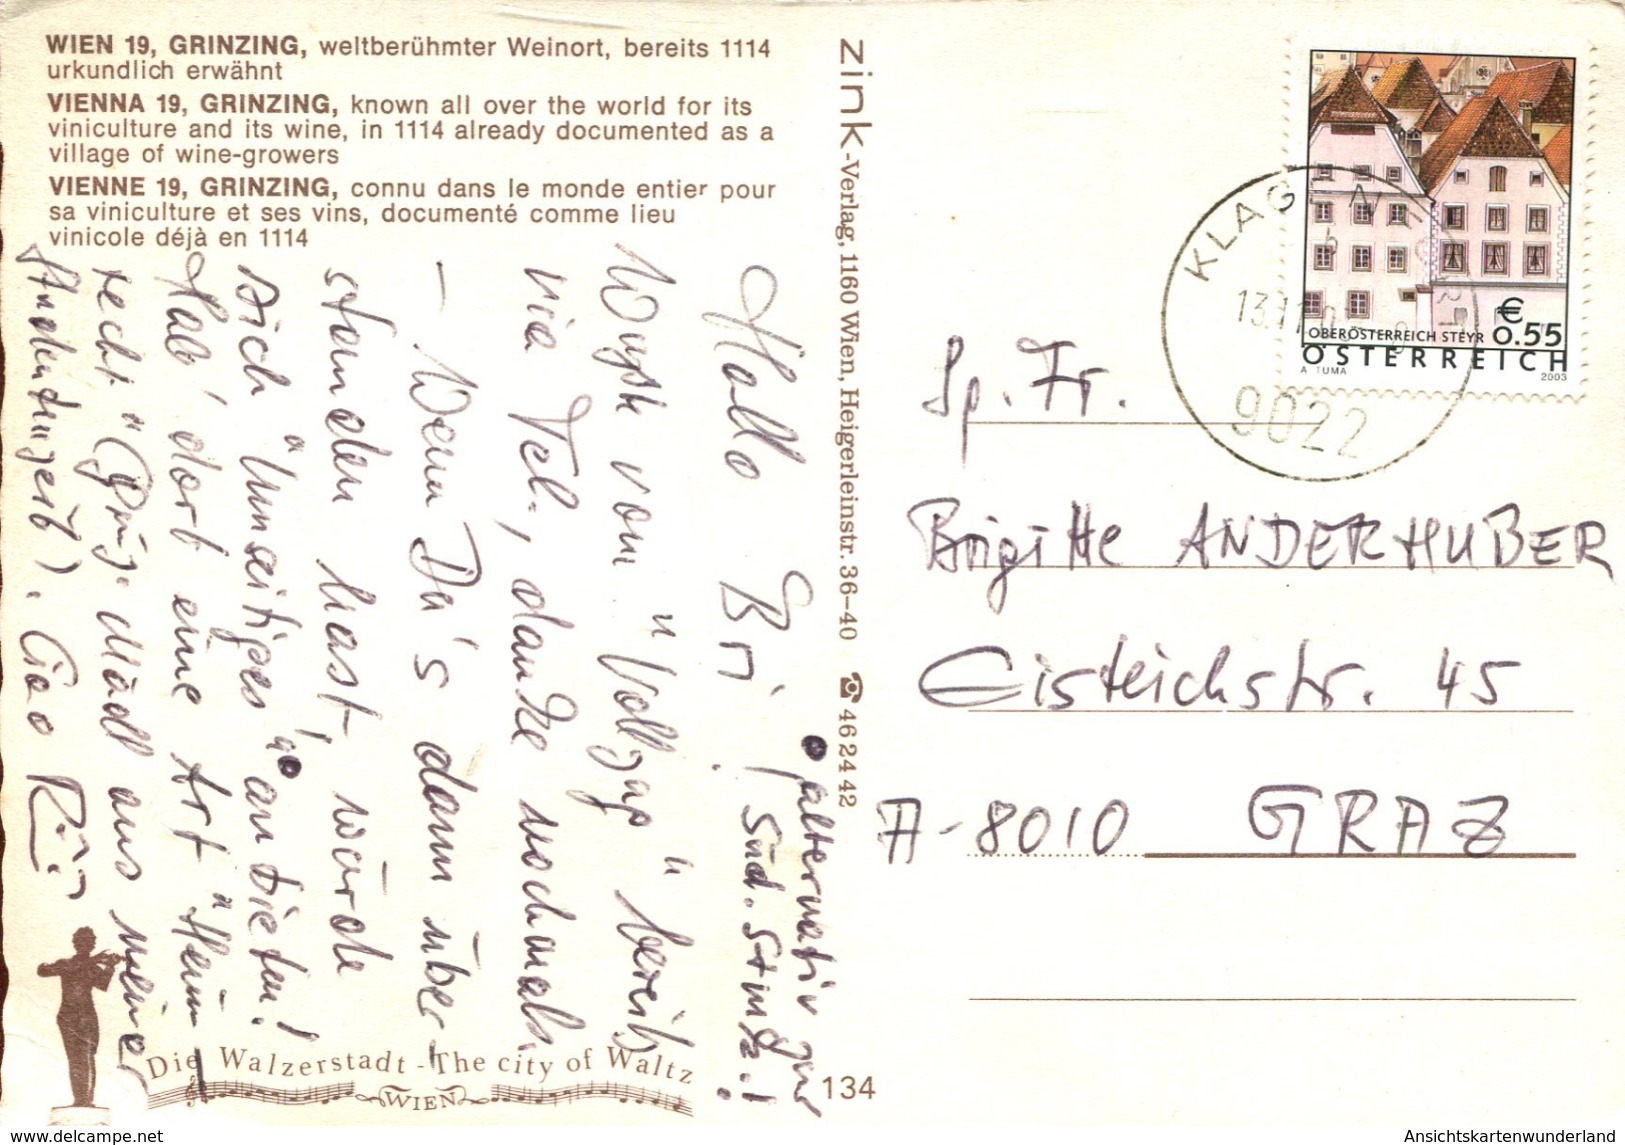 WIEN 19, GRINZING, weltberühmter Weinort, bereits 1114
urkundlich erwähnt
VIENNA 19, GRINZING, known all over the world for its
viniculture and its wine, in 1114 already documented as a
village of wine-growers
VIENNE 19, GRINZING, connu dans le monde entier pour
sa viniculture et ses vins, documenté comme lieu
vinicole déjà en 1114
Hallo Bri
Wusch vom "Vollzug" bereits
via Tel., danke nochmals.
— Wenn Du's dann über-
standen hast, würde
sich "Umseitiges" anbieten!
Hab' dort eine Art "Heim-
recht" (Grinz. Mädl aus meiner
Studentenzeit). Ciao
alternativ zur
Süd. Stmk.!
zink-Verlag, 1160 Wien, Heigerleinstr. 36-40 ☎ 46 24 42
KLAGENFURT
13.11.
9022
€
0.55
OBERÖSTERREICH STEYR
ÖSTERREICH
A. TUMA
2003
Sp. Fr.
Brigitte ANDERHUBER
Eisteichstr. 45
A-8010 GRAZ
Die Walzerstadt - The city of Waltz
WIEN
134
www.delcampe.net
Ansichtskartenwunderland